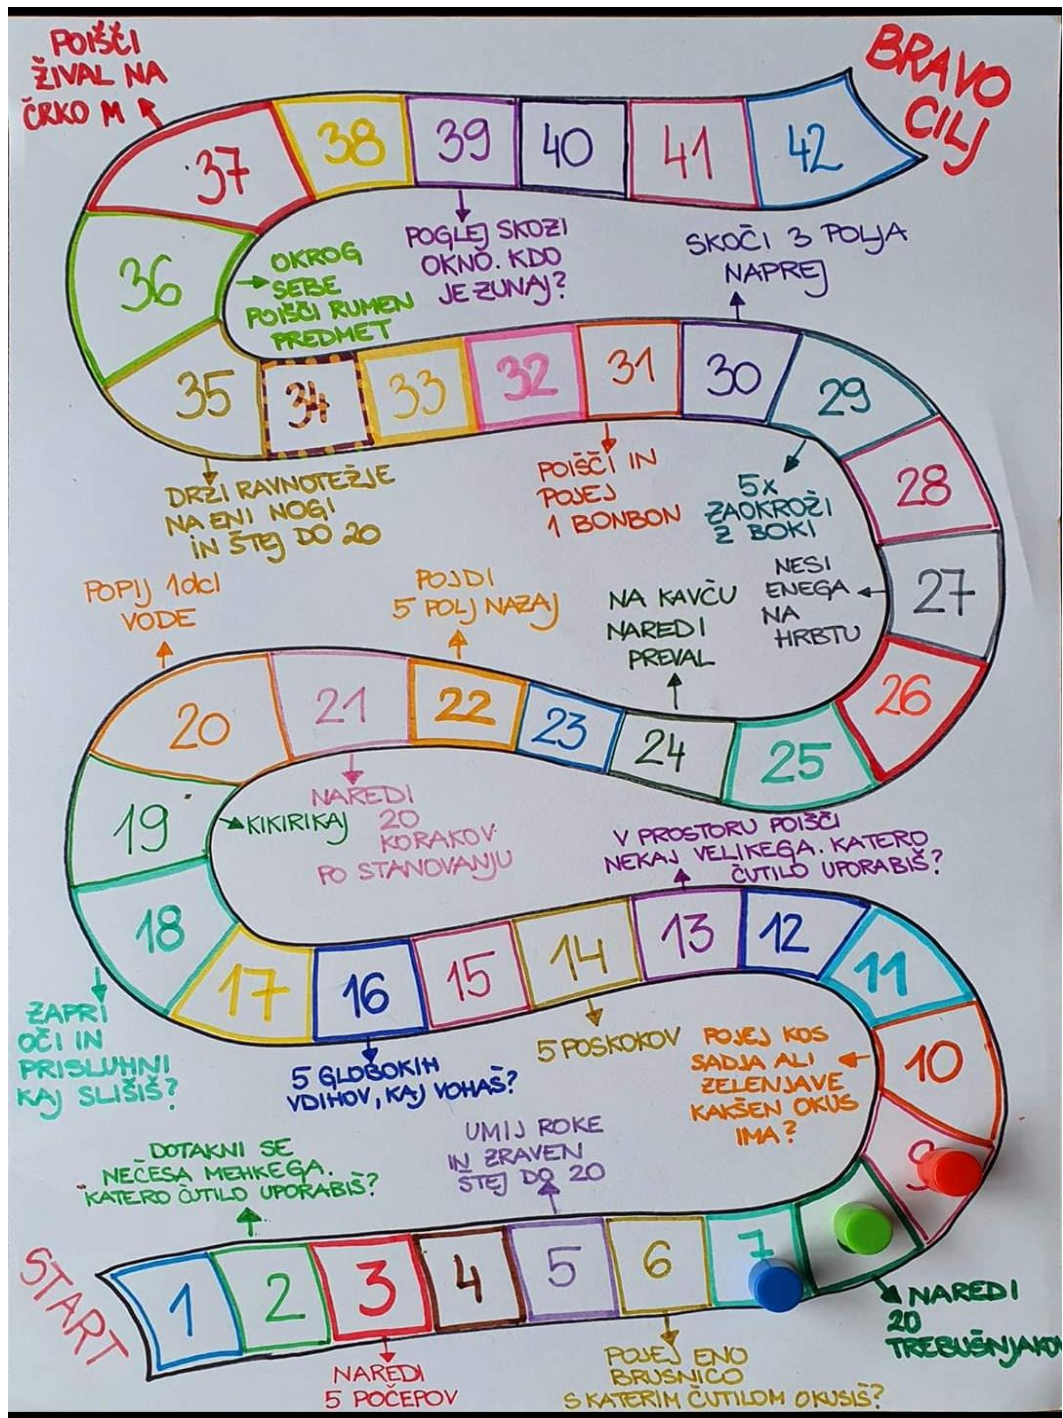 POIŠČI
ŽIVAL NA
ČRKO M
BRAVO
CILJ
37
38
39
40
41
42
36
OKROG
SEBE
POIŠČI RUMEN
PREDMET
POGLEJ SKOZI
OKNO. KDO
JE ZUNAJ?
SKOČI 3 POLJA
NAPREJ
35
34
33
32
31
30
29
28
DRŽI RAVNOTEŽJE
NA ENI NOGI
IN ŠTEJ DO 20
POIŠČI IN
POJEJ
1 BONBON
5x
ZAOKROŽI
Z BOKI
27
NESI
ENEGA
NA
HRBTU
POPIJ 1dcl
VODE
POJDI
5 POLJ NAZAJ
NA KAVČU
NAREDI
PREVAL
20
21
22
23
24
25
26
19
KIKIRIKAJ
NAREDI
20
KORAKOV
PO STANOVANJU
V PROSTORU POIŠČI
NEKAJ VELIKEGA. KATERO
ČUTILO UPORABIŠ?
18
17
16
15
14
13
12
11
10
ZAPRI
OČI IN
PRISLUHNI
KAJ SLIŠIŠ?
5 GLOBOKIH
VDIHOV, KAJ VOHAŠ?
5 POSKOKOV
POJEJ KOS
SADJA ALI
ZELENJAVE
KAKŠEN OKUS
IMA?
DOTAKNI SE
NEČESA MEHKEGA.
KATERO ČUTILO UPORABIŠ?
UMIJ ROKE
IN ZRAVEN
ŠTEJ DO 20
9
START
1
2
3
4
5
6
7
NAREDI
20
TREBUŠNJAKOV
NAREDI
5 POČEPOV
POJEJ ENO
BRUSNICO
S KATERIM ČUTILOM OKUSIŠ?